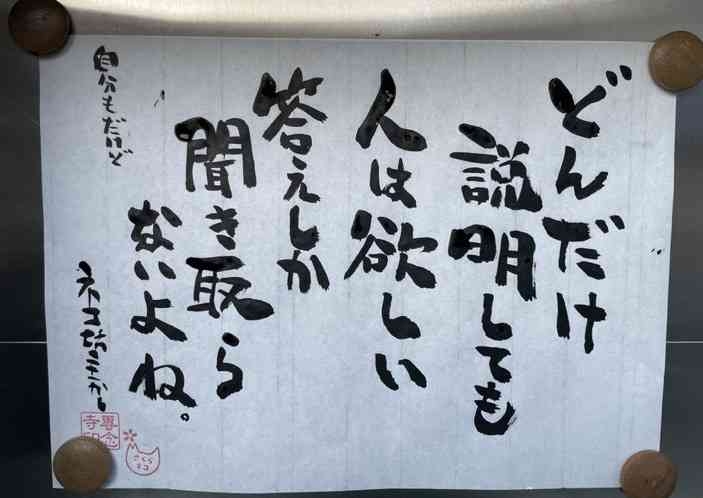 どんだけ
説明しても
人は欲しい
答えしか
聞き取ら
ないよね。
自分もだけど
ネコ坊主かし
専念
寺印
さくら
ネコ